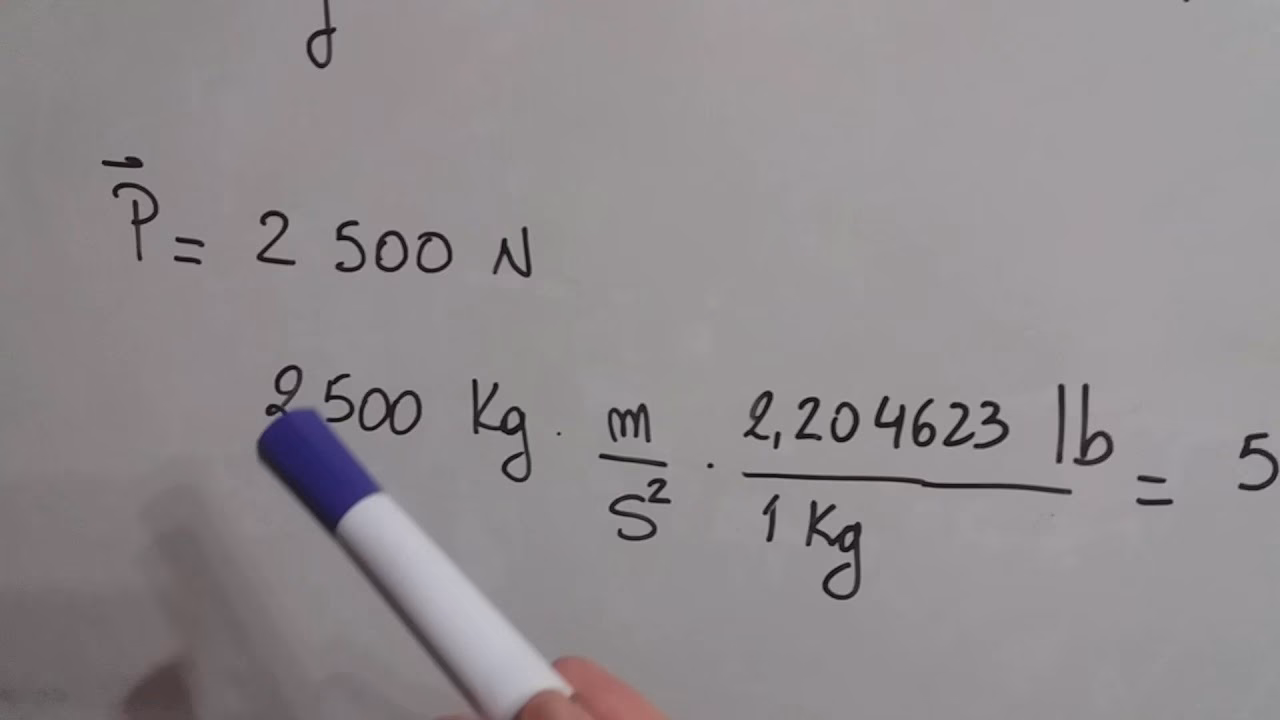 g
P⃗ = 2 500 N
2 500 Kg . m/s² . 2,204623 lb / 1 Kg = 5